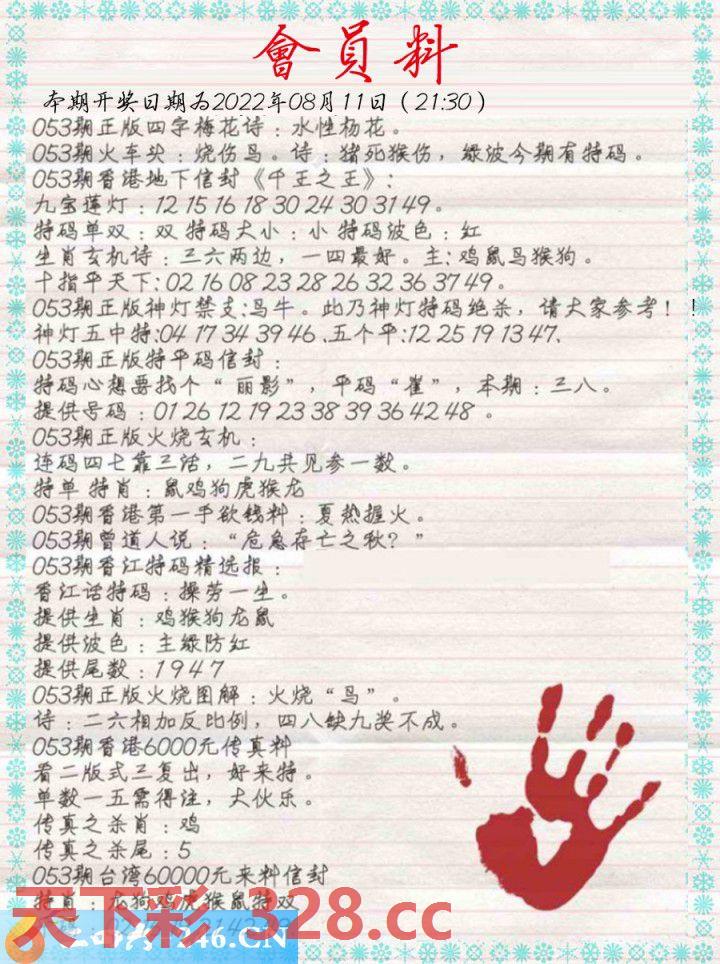 會員料
本期开奖日期为2022年08月11日（21:30）
053期正版四字梅花诗：水性杨花。
053期火车头：烧伤鸟。诗：猪死猴伤，绿波今期有特码。
053期香港地下信封《千王之王》：
九宝莲灯：12 15 16 18 30 24 30 31 49。
特码单双：双 特码大小：小 特码波色：红
生肖玄机诗：三六两边，一四最好。主：鸡鼠马猴狗。
十指平天下：02 16 08 23 28 26 32 36 37 49。
053期正版神灯禁支:马牛。此乃神灯特码绝杀，请大家参考！！
神灯五中特:04 17 34 39 46 .五个平:12 25 19 13 47.
053期正版特平码信封：
特码心想要找个“丽影”，平码“崔”，本期：三八。
提供号码：01 26 12 19 23 38 39 36 42 48 。
053期正版火烧玄机：
连码四七靠三话，二九共见参一数。
特单 特肖：鼠鸡狗虎猴龙
053期香港第一手欲钱料：夏热握火。
053期曾道人说：“危急存亡之秋？”
053期香江特码精选报：
香江话特码：操劳一生。
提供生肖：鸡猴狗龙鼠
提供波色：主绿防红
提供尾数：1 9 4 7
053期正版火烧图解：火烧“鸟”。
诗：二六相加反比例，四八缺九奖不成。
053期香港6000元传真料
看二版式三复出，好来特。
单数一五需得注，大伙乐。
传真之杀肖：鸡
传真之杀尾：5
053期台湾60000元来料信封
特肖：龙狗鸡虎猴鼠特双
天下彩 328.cc
246.CN